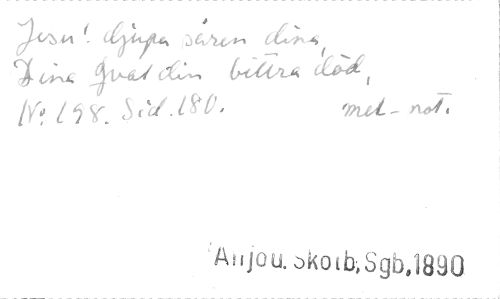 Jesu! djupa såren dina,
Dina qval din bittra död,
No. 198. Sid. 180. mel-not.
Anjou. Skolb, Sgb, 1890